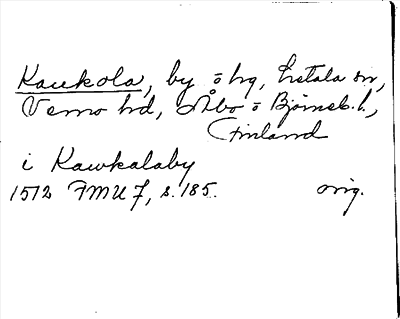 Kaukola, by o hg, Letala sn,
Vemo hd, Åbo o Björneb. l.,
Finland
i Kawkalaby
1512 FMU 7, s. 185. orig.